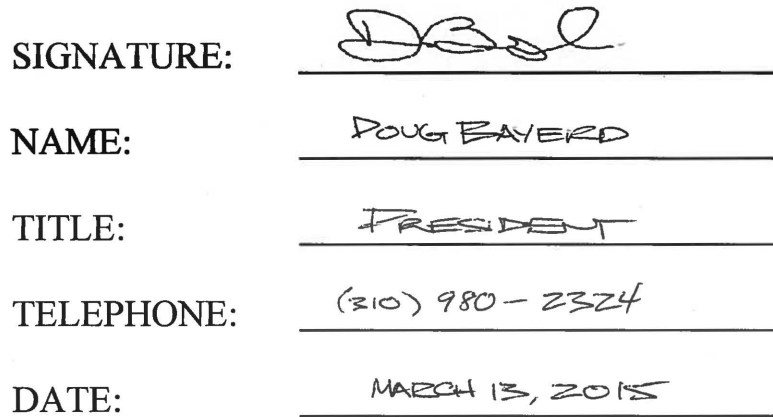 SIGNATURE:
NAME: DOUG BAYERD
TITLE: PRESIDENT
TELEPHONE: (310) 980-2324
DATE: MARCH 13, 2015